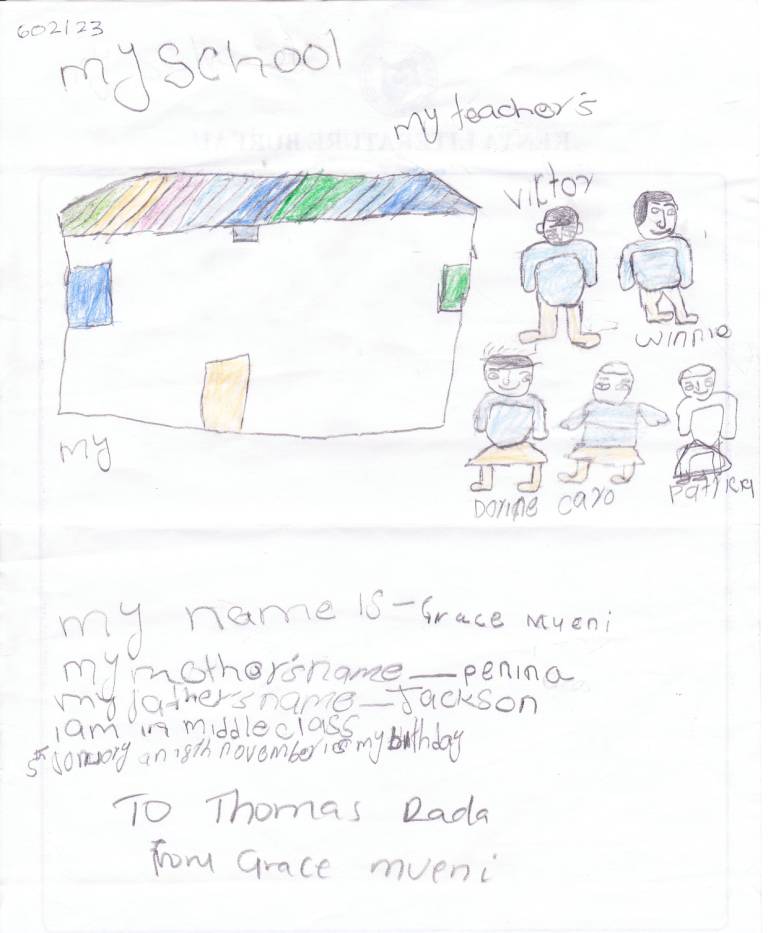 602123
my school
my teacher's
viktor
winnie
my
Dorine caro patrick
my name is - Grace mueni
my mother's name — penina
my father's name — Jackson
iam in middle class
5th january an 18th november is my birthday
TO Thomas Rada
from Grace mueni